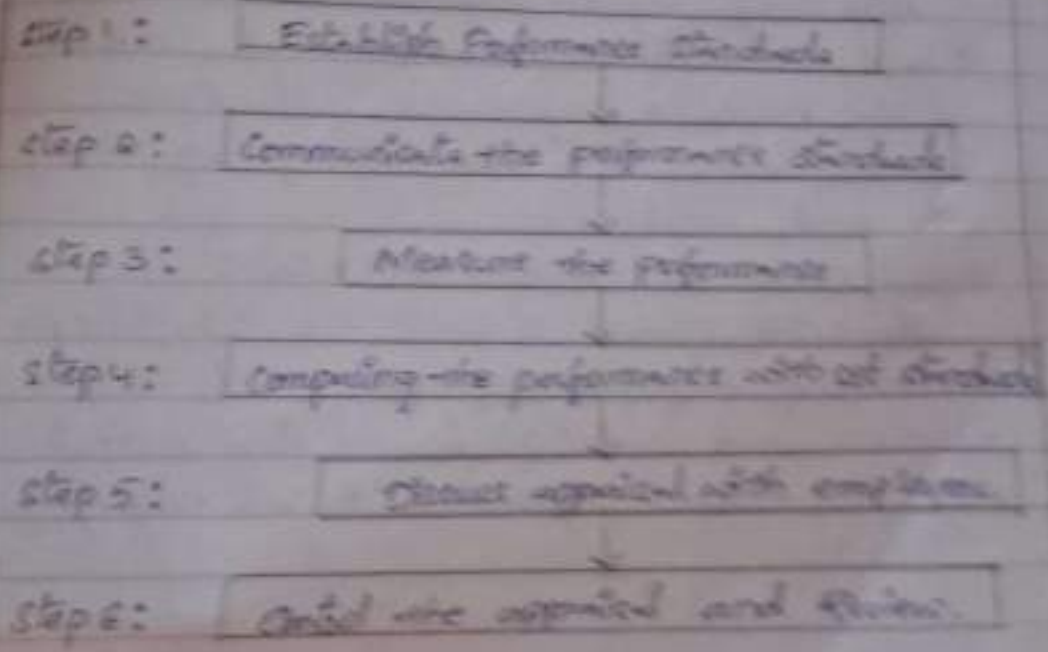 Step 1: Establish Performance Standards
Step 2: Communicate the performance standards
Step 3: Measure the performance
Step 4: Comparing the performance with set standards
Step 5: Discuss appraisal with employees
Step 6: the appraisal and Review.